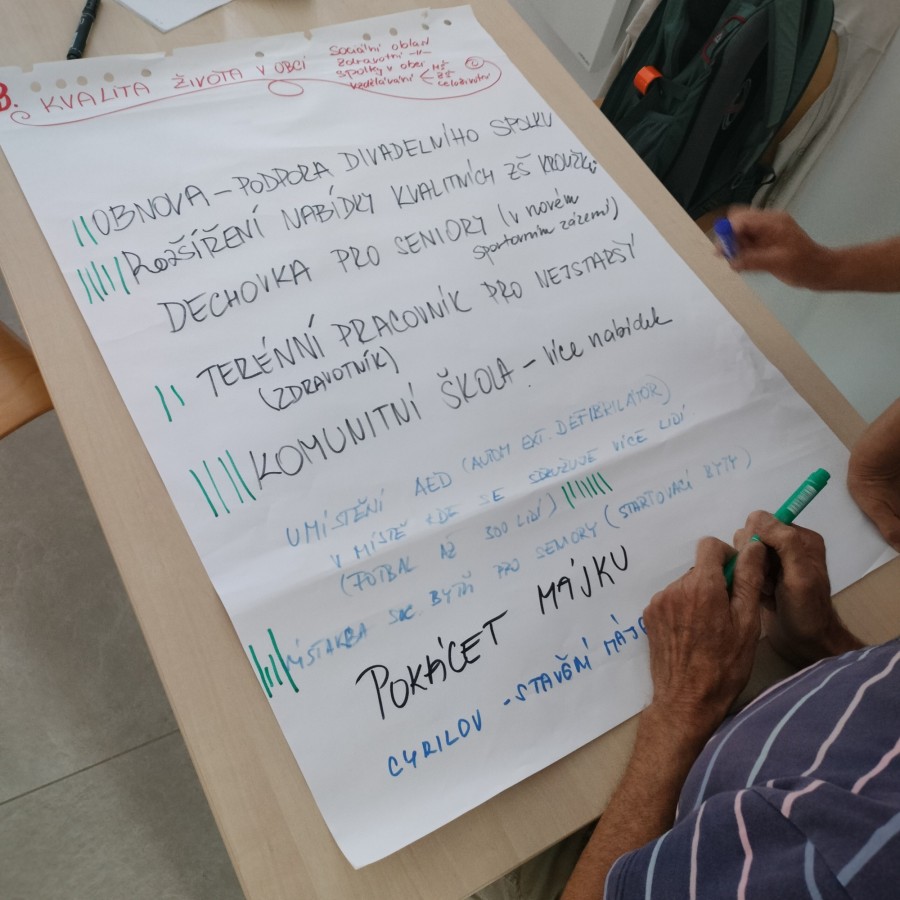 B. KVALITA ŽIVOTA V OBCI
Sociální oblast
zdravotní -"-
spolky v obci
vzdělávání < MŠ
ZŠ
celoživotní
OBNOVA – PODPORA DIVADELNÍHO SPOLKU
ROZŠÍŘENÍ NABÍDKY KVALITNÍCH ZŠ KROUŽKŮ
DECHOVKA PRO SENIORY (v novém
sportovním zázemí)
TERÉNNÍ PRACOVNÍK PRO NEJSTARŠÝ
(ZDRAVOTNÍK)
KOMUNITNÍ ŠKOLA – více nabídek
UMÍSTĚNÍ AED (AUTOM EXT. DEFIBRILÁTOR)
V MÍSTĚ KDE SE SDRUŽUJE VÍCE LIDÍ
(FOTBAL AŽ 300 LIDÍ)
SOC. BYTŮ PRO SENIORY (STARTOVACÍ BYTY)
POKÁCET MÁJKU
CYRILOV - STAVĚNÍ